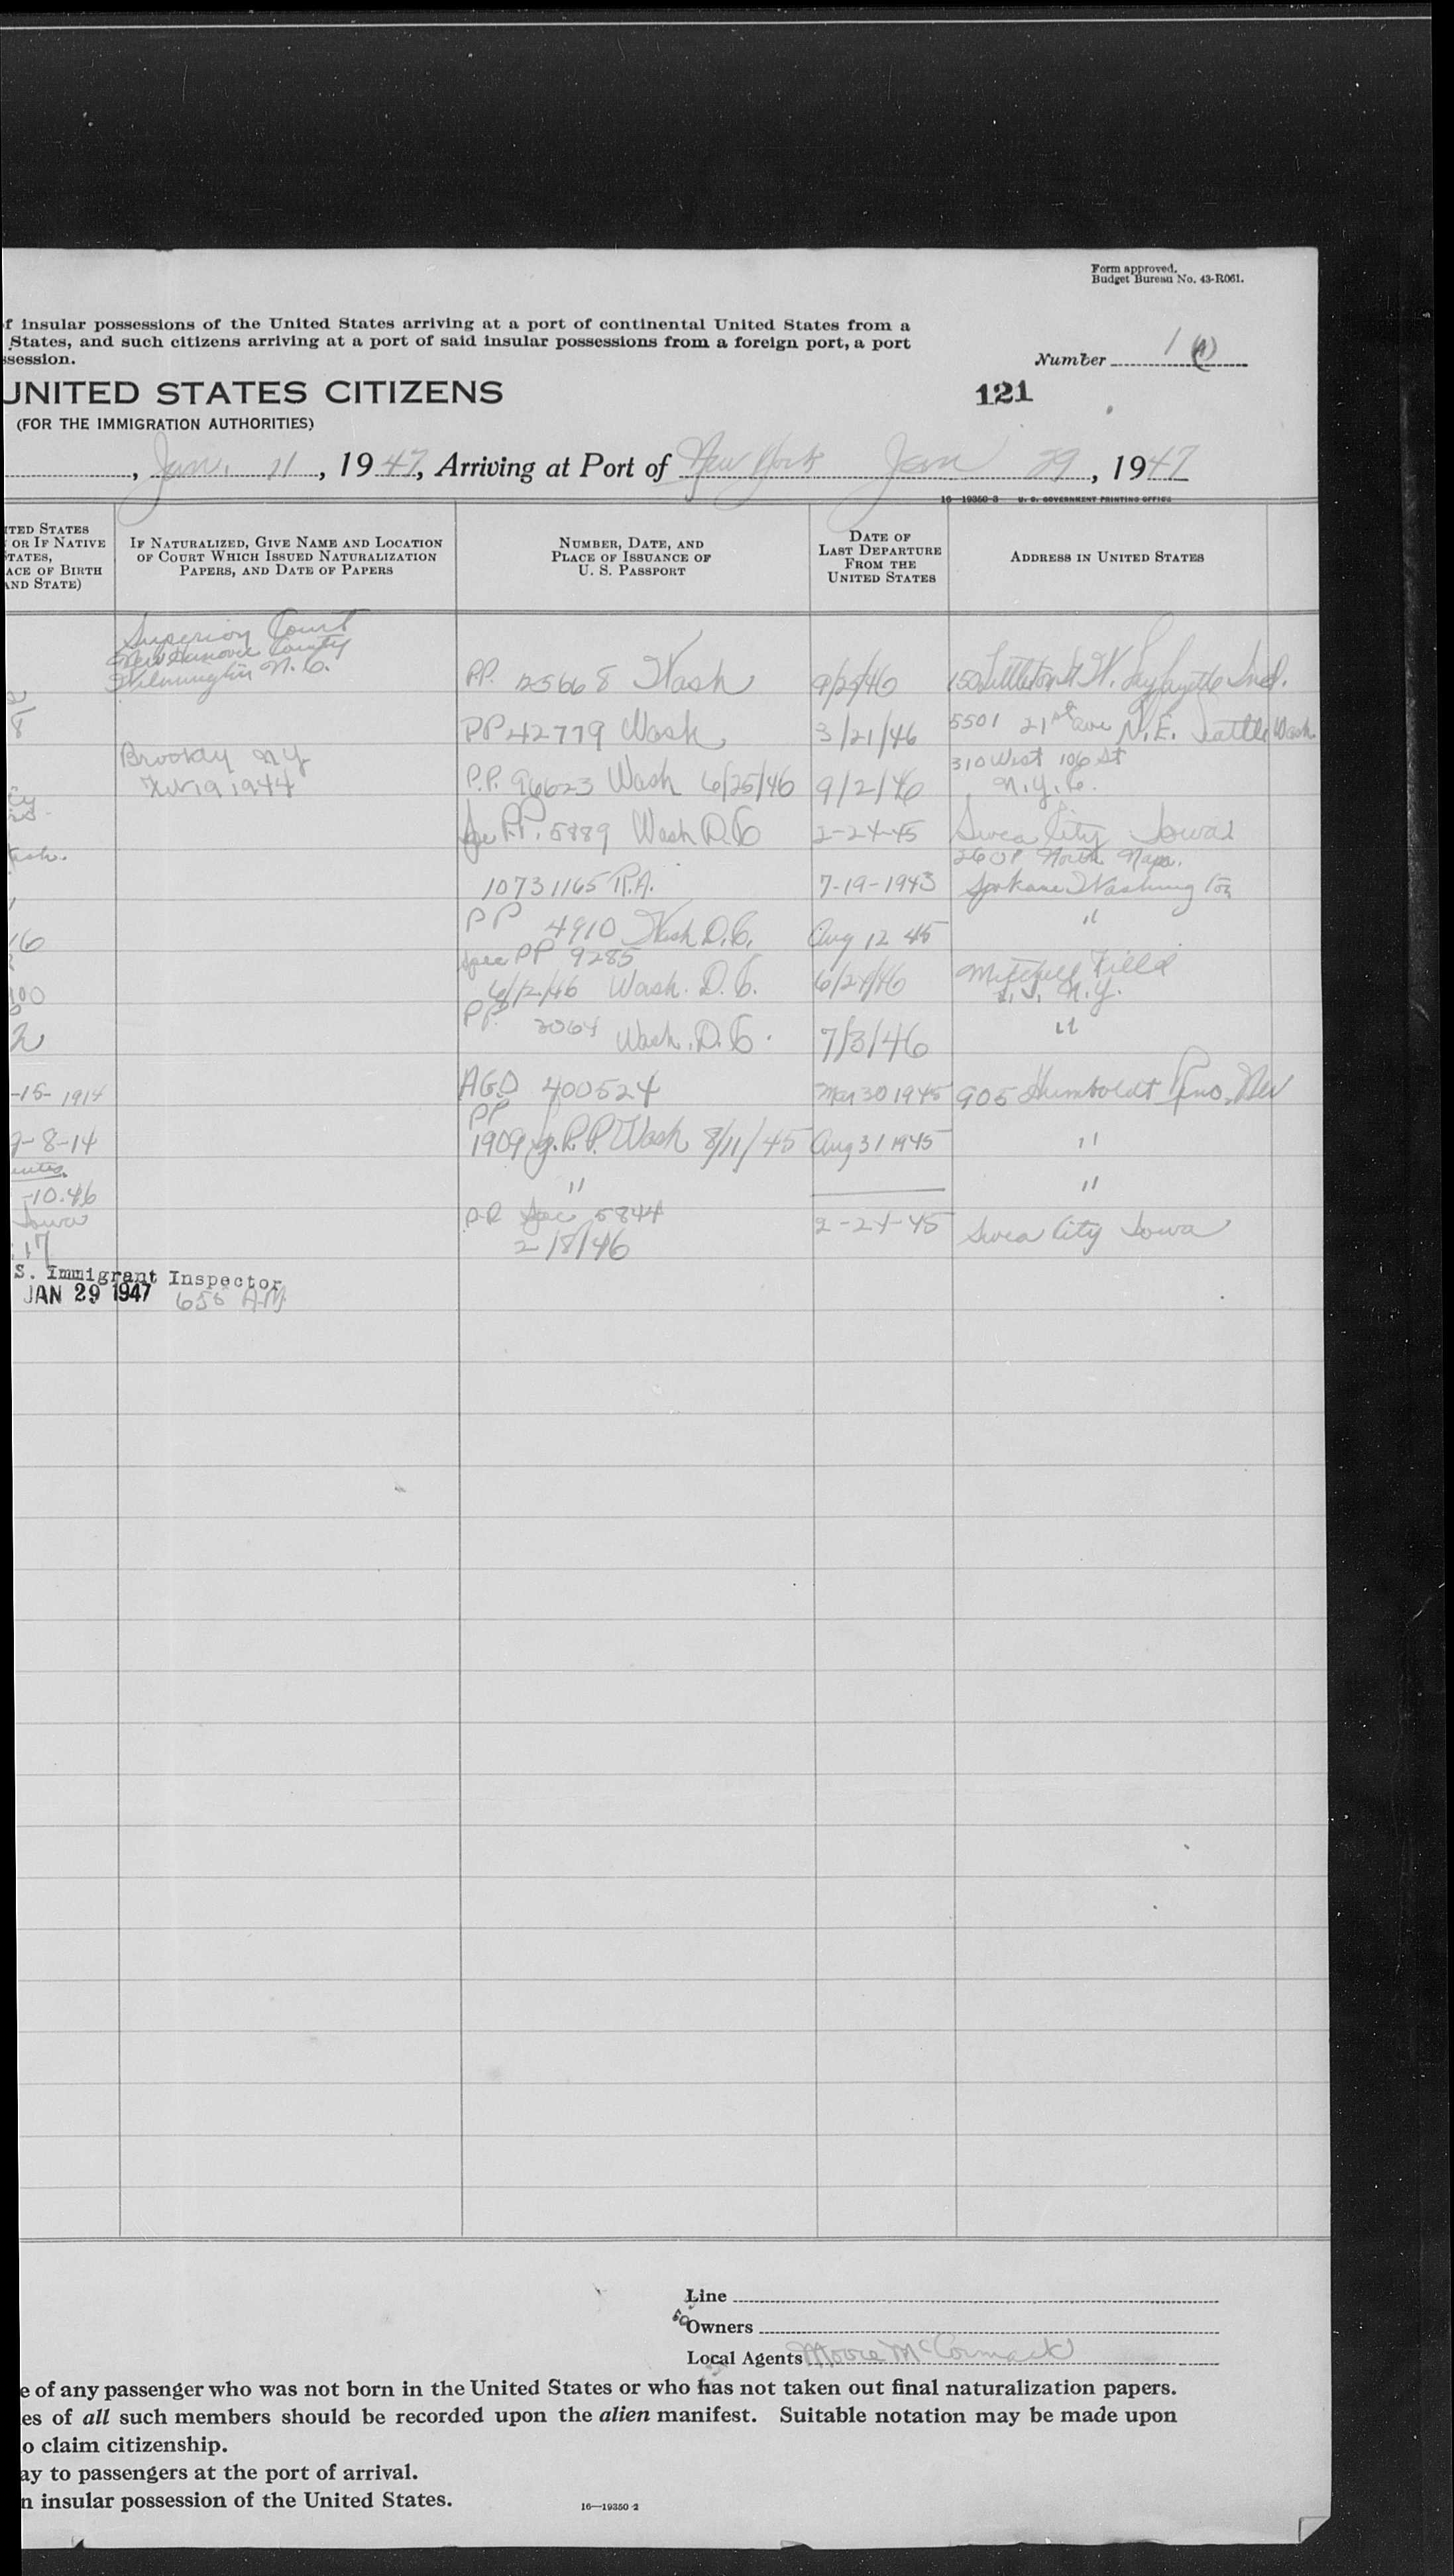 Form approved.
Budget Bureau No. 43-R061.
f insular possessions of the United States arriving at a port of continental United States from a
States, and such citizens arriving at a port of said insular possessions from a foreign port, a port
ssession.
Number 1 (A)
UNITED STATES CITIZENS
121
(FOR THE IMMIGRATION AUTHORITIES)
, Jan. 11, 1947, Arriving at Port of New York Jan 29, 1947
16—19350-3 U. S. GOVERNMENT PRINTING OFFICE
ITED STATES
OR IF NATIVE
TATES,
ACE OF BIRTH
AND STATE)
IF NATURALIZED, GIVE NAME AND LOCATION
OF COURT WHICH ISSUED NATURALIZATION
PAPERS, AND DATE OF PAPERS
NUMBER, DATE, AND
PLACE OF ISSUANCE OF
U. S. PASSPORT
DATE OF
LAST DEPARTURE
FROM THE
UNITED STATES
ADDRESS IN UNITED STATES
Superior Court
New Hanover County
Wilmington N.C.
P.P. 12566 8 Wash 9/25/46 150 Littleton St W. Lafayette Ind.
8 PP 42779 Wash 3/21/46 5501 21st Ave N.E. Seattle Wash.
Brookly NY
1944
P.P. 96623 Wash 6/25/46 9/2/46 310 West 106 St
N.Y.C.
P.P. 5889 Wash D.C 2-24-45 Swea City Iowa
10731165 R.A. 7-19-1943 2608 North Napa.
Spokane Washington
16 PP 4910 Wash D.C. Aug 12 45 "
Spec PP 9285
6/12/46 Wash. D.C. 6/24/46 Mitchell Field
L.I. N.Y.
PP. 2064 Wash. D.C. 7/3/46 "
-15-1914 AGO 400524 Mar 30 1945 905 Humboldt Reno, Nev
9-8-14 PP
1909 P.P. Wash 8/11/45 Aug 31 1945 "
-10.46 " "
Iowa
17
P.P. Spec 5844
2/8/46 2-24-45 Swea City Iowa
S. Immigrant Inspector
JAN 29 1947 655 A.M.
Line
Owners
Local Agents Moore McCormack
e of any passenger who was not born in the United States or who has not taken out final naturalization papers.
es of all such members should be recorded upon the alien manifest. Suitable notation may be made upon
o claim citizenship.
ay to passengers at the port of arrival.
n insular possession of the United States.
16—19350-2